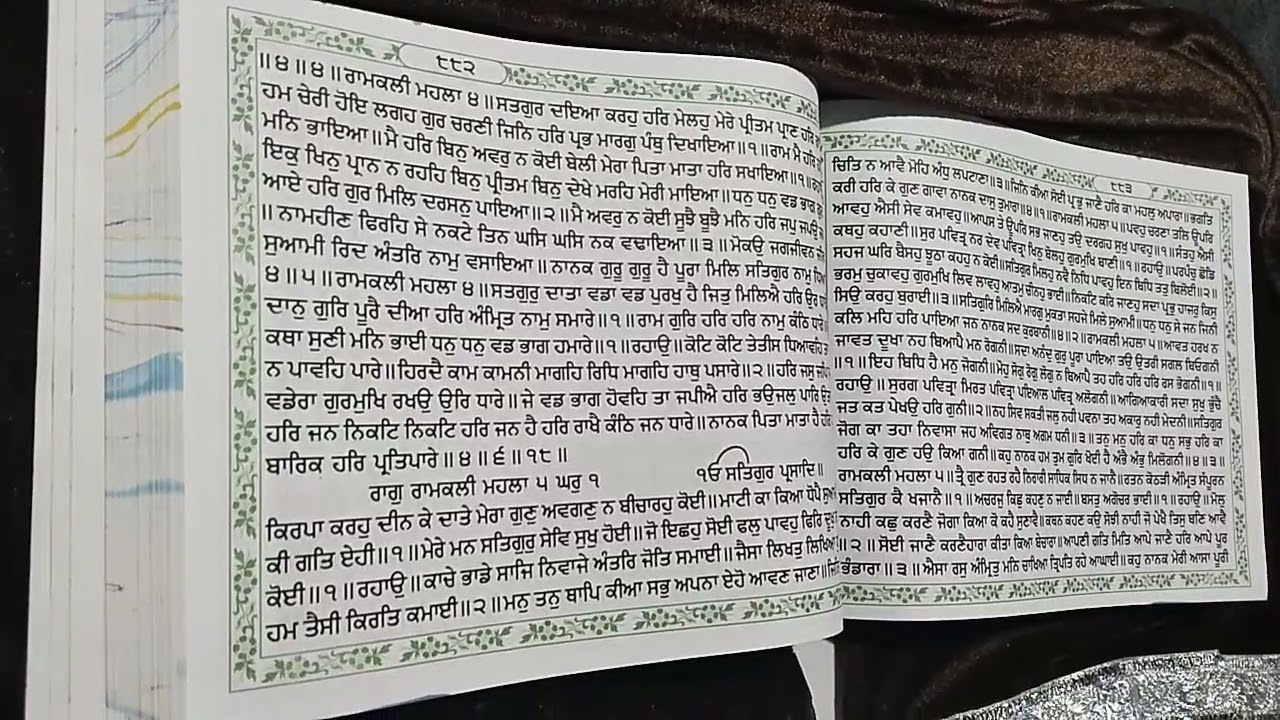 ੮੮੨
॥੪॥੪॥ਰਾਮਕਲੀ ਮਹਲਾ ੪॥ਸਤਗੁਰ ਦਇਆ ਕਰਹੁ ਹਰਿ ਮੇਲਹੁ ਮੇਰੇ ਪ੍ਰੀਤਮ ਪ੍ਰਾਣ ਹਰਿ
ਹਮ ਚੇਰੀ ਹੋਇ ਲਗਹ ਗੁਰ ਚਰਣੀ ਜਿਨਿ ਹਰਿ ਪ੍ਰਭ ਮਾਰਗੁ ਪੰਥੁ ਦਿਖਾਇਆ॥੧॥ਰਾਮ ਮੈ ਹਰਿ
ਮਨਿ ਭਾਇਆ॥ਮੈ ਹਰਿ ਬਿਨੁ ਅਵਰੁ ਨ ਕੋਈ ਬੇਲੀ ਮੇਰਾ ਪਿਤਾ ਮਾਤਾ ਹਰਿ ਸਖਾਇਆ॥੧॥
ਇਕੁ ਖਿਨੁ ਪ੍ਰਾਨ ਨ ਰਹਹਿ ਬਿਨੁ ਪ੍ਰੀਤਮ ਬਿਨੁ ਦੇਖੇ ਮਰਹਿ ਮੇਰੀ ਮਾਇਆ॥ਧਨੁ ਧਨੁ ਵਡ ਭਾਗ
ਆਏ ਹਰਿ ਗੁਰ ਮਿਲਿ ਦਰਸਨੁ ਪਾਇਆ॥੨॥ਮੈ ਅਵਰੁ ਨ ਕੋਈ ਸੂਝੈ ਬੂਝੈ ਮਨਿ ਹਰਿ ਜਪੁ ਜਪਉ
॥ਨਾਮਹੀਣ ਫਿਰਹਿ ਸੇ ਨਕਟੇ ਤਿਨ ਘਸਿ ਘਸਿ ਨਕ ਵਢਾਇਆ॥੩॥ਮੋਕਉ ਜਗਜੀਵਨ
ਸੁਆਮੀ ਰਿਦ ਅੰਤਰਿ ਨਾਮੁ ਵਸਾਇਆ॥ਨਾਨਕ ਗੁਰੂ ਗੁਰੂ ਹੈ ਪੂਰਾ ਮਿਲਿ ਸਤਿਗੁਰ ਨਾਮੁ
੪॥੫॥ਰਾਮਕਲੀ ਮਹਲਾ ੪॥ਸਤਗੁਰੁ ਦਾਤਾ ਵਡਾ ਵਡ ਪੁਰਖੁ ਹੈ ਜਿਤੁ ਮਿਲਿਐ ਹਰਿ ਉਰ
ਦਾਨੁ ਗੁਰਿ ਪੂਰੈ ਦੀਆ ਹਰਿ ਅੰਮ੍ਰਿਤ ਨਾਮੁ ਸਮਾਰੇ॥੧॥ਰਾਮ ਗੁਰਿ ਹਰਿ ਹਰਿ ਨਾਮੁ ਕੰਠਿ ਧਾਰੇ
ਕਥਾ ਸੁਣੀ ਮਨਿ ਭਾਈ ਧਨੁ ਧਨੁ ਵਡ ਭਾਗ ਹਮਾਰੇ॥੧॥ਰਹਾਉ॥ਕੋਟਿ ਕੋਟਿ ਤੇਤੀਸ ਧਿਆਵਹਿ
ਨ ਪਾਵਹਿ ਪਾਰੇ॥ਹਿਰਦੈ ਕਾਮ ਕਾਮਨੀ ਮਾਗਹਿ ਰਿਧਿ ਮਾਗਹਿ ਹਾਥੁ ਪਸਾਰੇ॥੨॥ਹਰਿ ਜਸੁ
ਵਡੇਰਾ ਗੁਰਮੁਖਿ ਰਖਉ ਉਰਿ ਧਾਰੇ॥ਜੇ ਵਡ ਭਾਗ ਹੋਵਹਿ ਤਾ ਜਪੀਐ ਹਰਿ ਭਉਜਲੁ ਪਾਰਿ
ਹਰਿ ਜਨ ਨਿਕਟਿ ਨਿਕਟਿ ਹਰਿ ਜਨ ਹੈ ਹਰਿ ਰਾਖੈ ਕੰਠਿ ਜਨ ਧਾਰੇ॥ਨਾਨਕ ਪਿਤਾ ਮਾਤਾ ਹੈ
ਬਾਰਿਕ ਹਰਿ ਪ੍ਰਤਿਪਾਰੇ॥੪॥੬॥੧੮॥
ਰਾਗੁ ਰਾਮਕਲੀ ਮਹਲਾ ੫ ਘਰੁ ੧ ੴ ਸਤਿਗੁਰ ਪ੍ਰਸਾਦਿ॥
ਕਿਰਪਾ ਕਰਹੁ ਦੀਨ ਕੇ ਦਾਤੇ ਮੇਰਾ ਗੁਣੁ ਅਵਗਣੁ ਨ ਬੀਚਾਰਹੁ ਕੋਈ॥ਮਾਟੀ ਕਾ ਕਿਆ ਧੋਪੈ
ਕੀ ਗਤਿ ਏਹੀ॥੧॥ਮੇਰੇ ਮਨ ਸਤਿਗੁਰੁ ਸੇਵਿ ਸੁਖੁ ਹੋਈ॥ਜੋ ਇਛਹੁ ਸੋਈ ਫਲੁ ਪਾਵਹੁ ਫਿਰਿ
ਕੋਈ॥੧॥ਰਹਾਉ॥ਕਾਚੇ ਭਾਡੇ ਸਾਜਿ ਨਿਵਾਜੇ ਅੰਤਰਿ ਜੋਤਿ ਸਮਾਈ॥ਜੈਸਾ ਲਿਖਤੁ
ਹਮ ਤੈਸੀ ਕਿਰਤਿ ਕਮਾਈ॥੨॥ਮਨੁ ਤਨੁ ਥਾਪਿ ਕੀਆ ਸਭੁ ਅਪਨਾ ਏਹੋ ਆਵਣ ਜਾਣਾ॥
੮੮੩
ਚਿਤਿ ਨ ਆਵੈ ਮੋਹਿ ਅੰਧੁ ਲਪਟਾਣਾ॥੩॥ਜਿਨਿ ਕੀਆ ਸੋਈ ਪ੍ਰਭੁ ਜਾਣੈ ਹਰਿ ਕਾ ਮਹਲੁ ਅਪਾਰਾ॥ਭਗਤਿ
ਕਰੀ ਹਰਿ ਕੇ ਗੁਣ ਗਾਵਾ ਨਾਨਕ ਦਾਸੁ ਤੁਮਾਰਾ॥੪॥੧॥ਰਾਮਕਲੀ ਮਹਲਾ ੫॥ਪਵਹੁ ਚਰਣਾ ਤਲਿ ਊਪਰਿ
ਆਵਹੁ ਐਸੀ ਸੇਵ ਕਮਾਵਹੁ॥ਆਪਸ ਤੇ ਊਪਰਿ ਸਭ ਜਾਣਹੁ ਤਉ ਦਰਗਹ ਸੁਖੁ ਪਾਵਹੁ॥੧॥ਸੰਤਹੁ ਐਸੀ
ਕਥਹੁ ਕਹਾਣੀ॥ਸੁਰ ਪਵਿਤ੍ਰ ਨਰ ਦੇਵ ਪਵਿਤ੍ਰਾ ਖਿਨੁ ਬੋਲਹੁ ਗੁਰਮੁਖਿ ਬਾਣੀ॥੧॥ਰਹਾਉ॥ਪਰਪੰਚੁ ਛੋਡਿ
ਸਹਜ ਘਰਿ ਬੈਸਹੁ ਝੂਠਾ ਕਹਹੁ ਨ ਕੋਈ॥ਸਤਿਗੁਰ ਮਿਲਹੁ ਨਵੈ ਨਿਧਿ ਪਾਵਹੁ ਇਨ ਬਿਧਿ ਤਤੁ ਬਿਲੋਈ॥੨॥
ਭਰਮੁ ਚੁਕਾਵਹੁ ਗੁਰਮੁਖਿ ਲਿਵ ਲਾਵਹੁ ਆਤਮੁ ਚੀਨਹੁ ਭਾਈ॥ਨਿਕਟਿ ਕਰਿ ਜਾਣਹੁ ਸਦਾ ਪ੍ਰਭੁ ਹਾਜਰੁ ਕਿਸੁ
ਸਿਉ ਕਰਹੁ ਬੁਰਾਈ॥੩॥ਸਤਿਗੁਰਿ ਮਿਲਿਐ ਮਾਰਗੁ ਮੁਕਤਾ ਸਹਜੇ ਮਿਲੇ ਸੁਆਮੀ॥ਧਨੁ ਧਨੁ ਸੇ ਜਨ ਜਿਨੀ
ਕਲਿ ਮਹਿ ਹਰਿ ਪਾਇਆ ਜਨ ਨਾਨਕ ਸਦ ਕੁਰਬਾਨੀ॥੪॥੨॥ਰਾਮਕਲੀ ਮਹਲਾ ੫॥ਆਵਤ ਹਰਖ ਨ
ਜਾਵਤ ਦੂਖਾ ਨਹ ਬਿਆਪੈ ਮਨ ਰੋਗਨੀ॥ਸਦਾ ਅਨੰਦੁ ਗੁਰੁ ਪੂਰਾ ਪਾਇਆ ਤਉ ਉਤਰੀ ਸਗਲ ਬਿਓਗਨੀ
॥੧॥ਇਹ ਬਿਧਿ ਹੈ ਮਨੁ ਜੋਗਨੀ॥ਮੋਹੁ ਸੋਗੁ ਰੋਗੁ ਲੋਗੁ ਨ ਬਿਆਪੈ ਤਹ ਹਰਿ ਹਰਿ ਹਰਿ ਰਸ ਭੋਗਨੀ॥੧॥
ਰਹਾਉ॥ਸੁਰਗ ਪਵਿਤ੍ਰਾ ਮਿਰਤ ਪਵਿਤ੍ਰਾ ਪਇਆਲ ਪਵਿਤ੍ਰ ਅਲੋਗਨੀ॥ਆਗਿਆਕਾਰੀ ਸਦਾ ਸੁਖੁ ਭੁੰਚੈ
ਜਤ ਕਤ ਪੇਖਉ ਹਰਿ ਗੁਨੀ॥੨॥ਨਹ ਸਿਵ ਸਕਤੀ ਜਲੁ ਨਹੀ ਪਵਨਾ ਤਹ ਅਕਾਰੁ ਨਹੀ ਮੇਦਨੀ॥ਸਤਿਗੁਰ
ਜੋਗ ਕਾ ਤਹਾ ਨਿਵਾਸਾ ਜਹ ਅਵਿਗਤ ਨਾਥੁ ਅਗਮ ਧਨੀ॥੩॥ਤਨੁ ਮਨੁ ਹਰਿ ਕਾ ਧਨੁ ਸਭੁ ਹਰਿ ਕਾ
ਹਰਿ ਕੇ ਗੁਣ ਹਉ ਕਿਆ ਗਨੀ॥ਕਹੁ ਨਾਨਕ ਹਮ ਤੁਮ ਗੁਰਿ ਖੋਈ ਹੈ ਅੰਭੈ ਅੰਭੁ ਮਿਲੋਗਨੀ॥੪॥੩॥
ਰਾਮਕਲੀ ਮਹਲਾ ੫॥ਤ੍ਰੈ ਗੁਣ ਰਹਤ ਰਹੈ ਨਿਰਾਰੀ ਸਾਧਿਕ ਸਿਧ ਨ ਜਾਨੈ॥ਰਤਨ ਕੋਠੜੀ ਅੰਮ੍ਰਿਤ ਸੰਪੂਰਨ
ਸਤਿਗੁਰ ਕੈ ਖਜਾਨੈ॥੧॥ਅਚਰਜੁ ਕਿਛੁ ਕਹਣੁ ਨ ਜਾਈ॥ਬਸਤੁ ਅਗੋਚਰ ਭਾਈ॥੧॥ਰਹਾਉ॥ਮੋਲੁ
ਨਾਹੀ ਕਛੁ ਕਰਣੈ ਜੋਗਾ ਕਿਆ ਕੋ ਕਹੈ ਸੁਣਾਵੈ॥ਕਥਨ ਕਹਣ ਕਉ ਸੋਝੀ ਨਾਹੀ ਜੋ ਪੇਖੈ ਤਿਸੁ ਬਣਿ ਆਵੈ
॥੨॥ਸੋਈ ਜਾਣੈ ਕਰਣੈਹਾਰਾ ਕੀਤਾ ਕਿਆ ਬੇਚਾਰਾ॥ਆਪਣੀ ਗਤਿ ਮਿਤਿ ਆਪੇ ਜਾਣੈ ਹਰਿ ਆਪੇ ਪੂਰ
ਭੰਡਾਰਾ॥੩॥ਐਸਾ ਰਸੁ ਅੰਮ੍ਰਿਤੁ ਮਨਿ ਚਾਖਿਆ ਤ੍ਰਿਪਤਿ ਰਹੇ ਆਘਾਈ॥ਕਹੁ ਨਾਨਕ ਮੇਰੀ ਆਸਾ ਪੂਰੀ